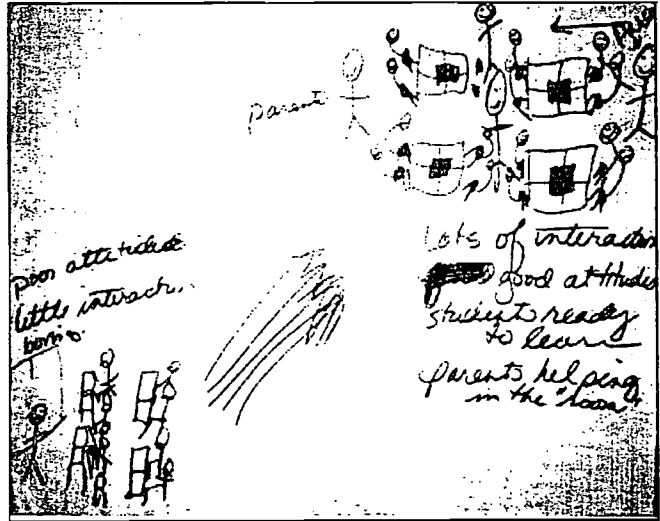 parent
poor attitudes
little interach.
boring.
lots of interaction
good attitudes
students ready
to learn
parents helping
in the "room"